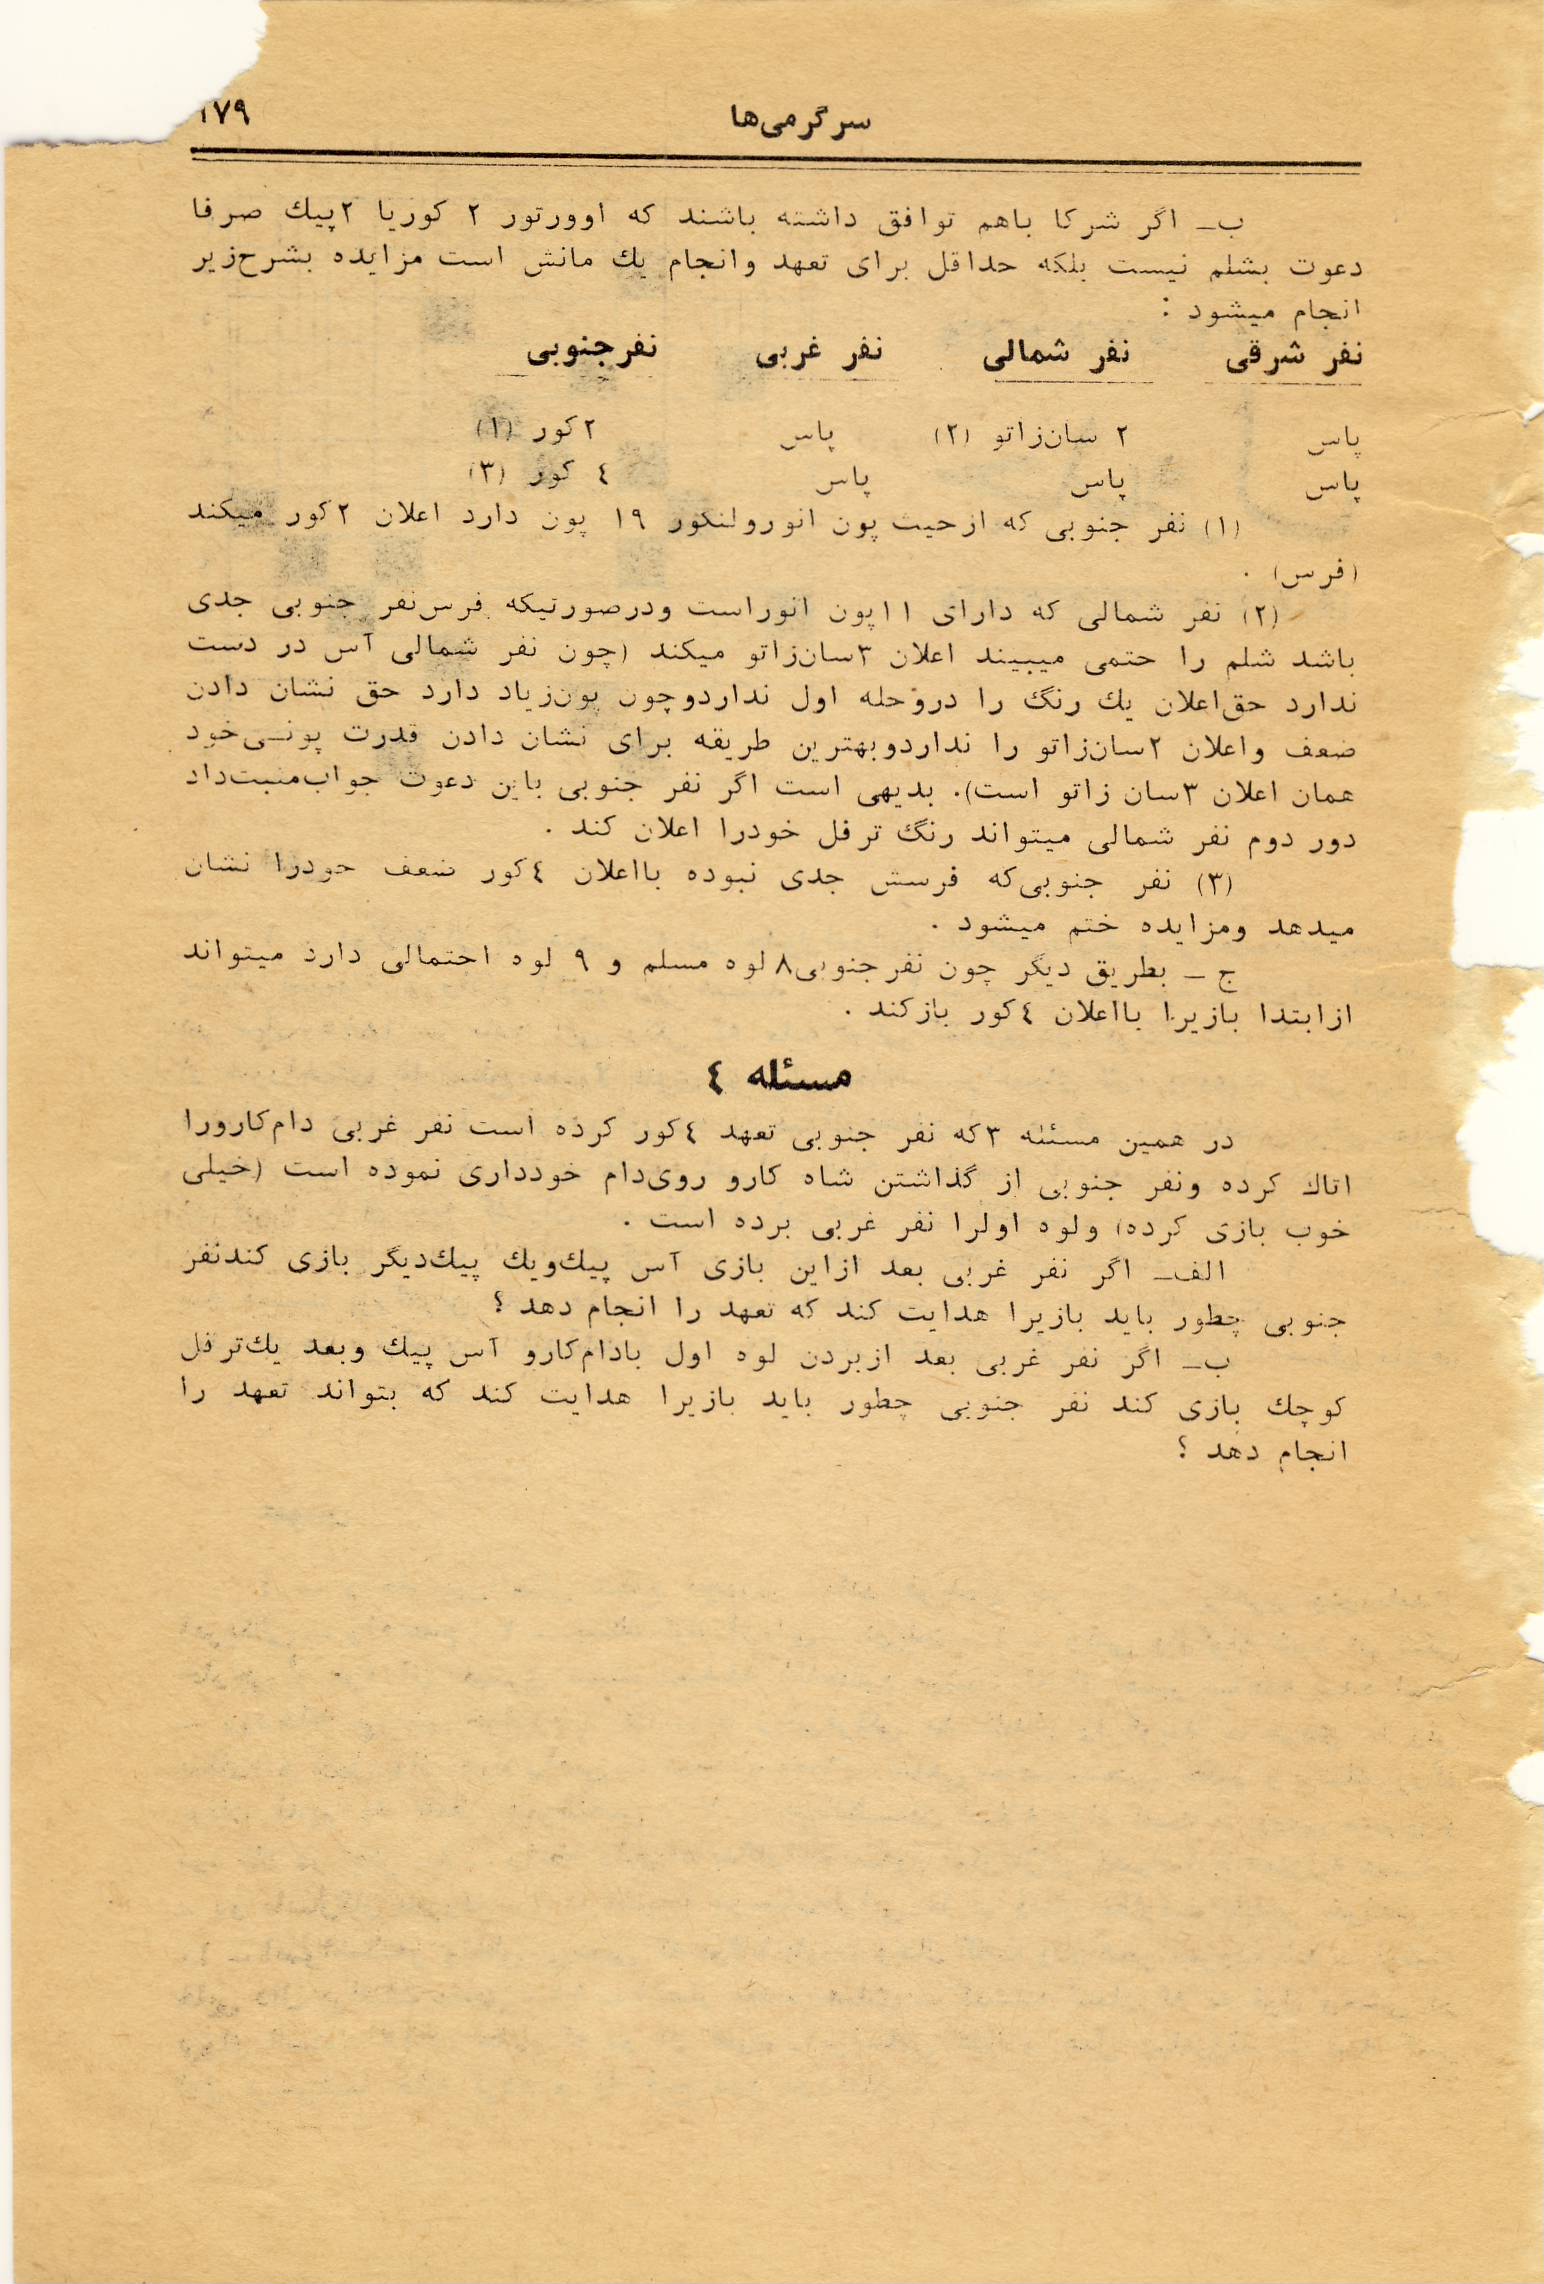 سرگرمی‌ها ۱۷۹
ب_ اگر شرکا باهم توافق داشته باشند که اوورتور ۲ کوریا ۲پیك صرفا
دعوت بشلم نیست بلکه حداقل برای تعهد وانجام یك مانش است مزایده بشرح‌زیر
انجام میشود :
نفر شرقی نفر شمالی نفر غربی نفرجنوبی
پاس ۲ سان‌زاتو (۲) پاس ۲کور (۱)
پاس پاس پاس ٤ کور (۳)
(۱) نفر جنوبی که ازحیث پون انورولنگور ۱۹ پون دارد اعلان ۲کور میکند
(فرس) .
(۲) نفر شمالی که دارای ۱۱پون انوراست ودرصورتیکه فرس‌نفر جنوبی جدی
باشد شلم را حتمی میبیند اعلان ۳سان‌زاتو میکند (چون نفر شمالی آس در دست
ندارد حق‌اعلان یك رنگ را دروحله اول نداردوچون پون‌زیاد دارد حق نشان دادن
ضعف واعلان ۲سان‌زاتو را نداردوبهترین طریقه برای نشان دادن قدرت پونـی‌خود
همان اعلان ۳سان زاتو است). بدیهی است اگر نفر جنوبی باین دعوت جواب‌مثبت‌داد
دور دوم نفر شمالی میتواند رنگ ترفل خودرا اعلان کند .
(۳) نفر جنوبی‌که فرسش جدی نبوده بااعلان ٤کور ضعف خودرا نشان
میدهد ومزایده ختم میشود .
ج _ بطریق دیگر چون نفرجنوبی۸ لوه مسلم و ۹ لوه احتمالی دارد میتواند
ازابتدا بازیرا بااعلان ٤کور بازکند .
مسئله ٤
در همین مسئله ۳که نفر جنوبی تعهد ٤کور کرده است نفر غربی دام‌کارورا
اتاك کرده ونفر جنوبی از گذاشتن شاه کارو روی‌دام خودداری نموده است (خیلی
خوب بازی کرده) ولوه اولرا نفر غربی برده است .
الف_ اگر نفر غربی بعد ازاین بازی آس پیك‌ویك پیك‌دیگر بازی کندنفر
جنوبی چطور باید بازیرا هدایت کند که تعهد را انجام دهد ؟
ب_ اگر نفر غربی بعد ازبردن لوه اول بادام‌کارو آس پیك وبعد یك‌ترفل
کوچك بازی کند نفر جنوبی چطور باید بازیرا هدایت کند که بتواند تعهد را
انجام دهد ؟